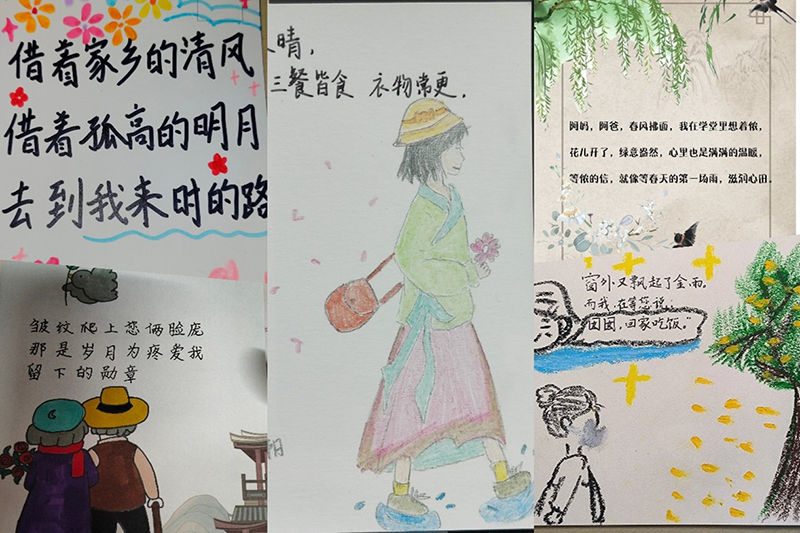 借着家乡的清风
借着孤高的明月
去到我来时的路
皱纹爬上您俩脸庞
那是岁月为疼爱我
留下的勋章
晴,
三餐皆食 衣物常更.
阳
阿妈,阿爸,春风拂面,我在学堂里想着侬,
花儿开了,绿意盎然,心里也是满满的温暖,
等侬的信,就像等春天的第一场雨,滋润心田。
窗外又飘起了金雨,
而我,在等您说:
“囡囡,回家吃饭。”